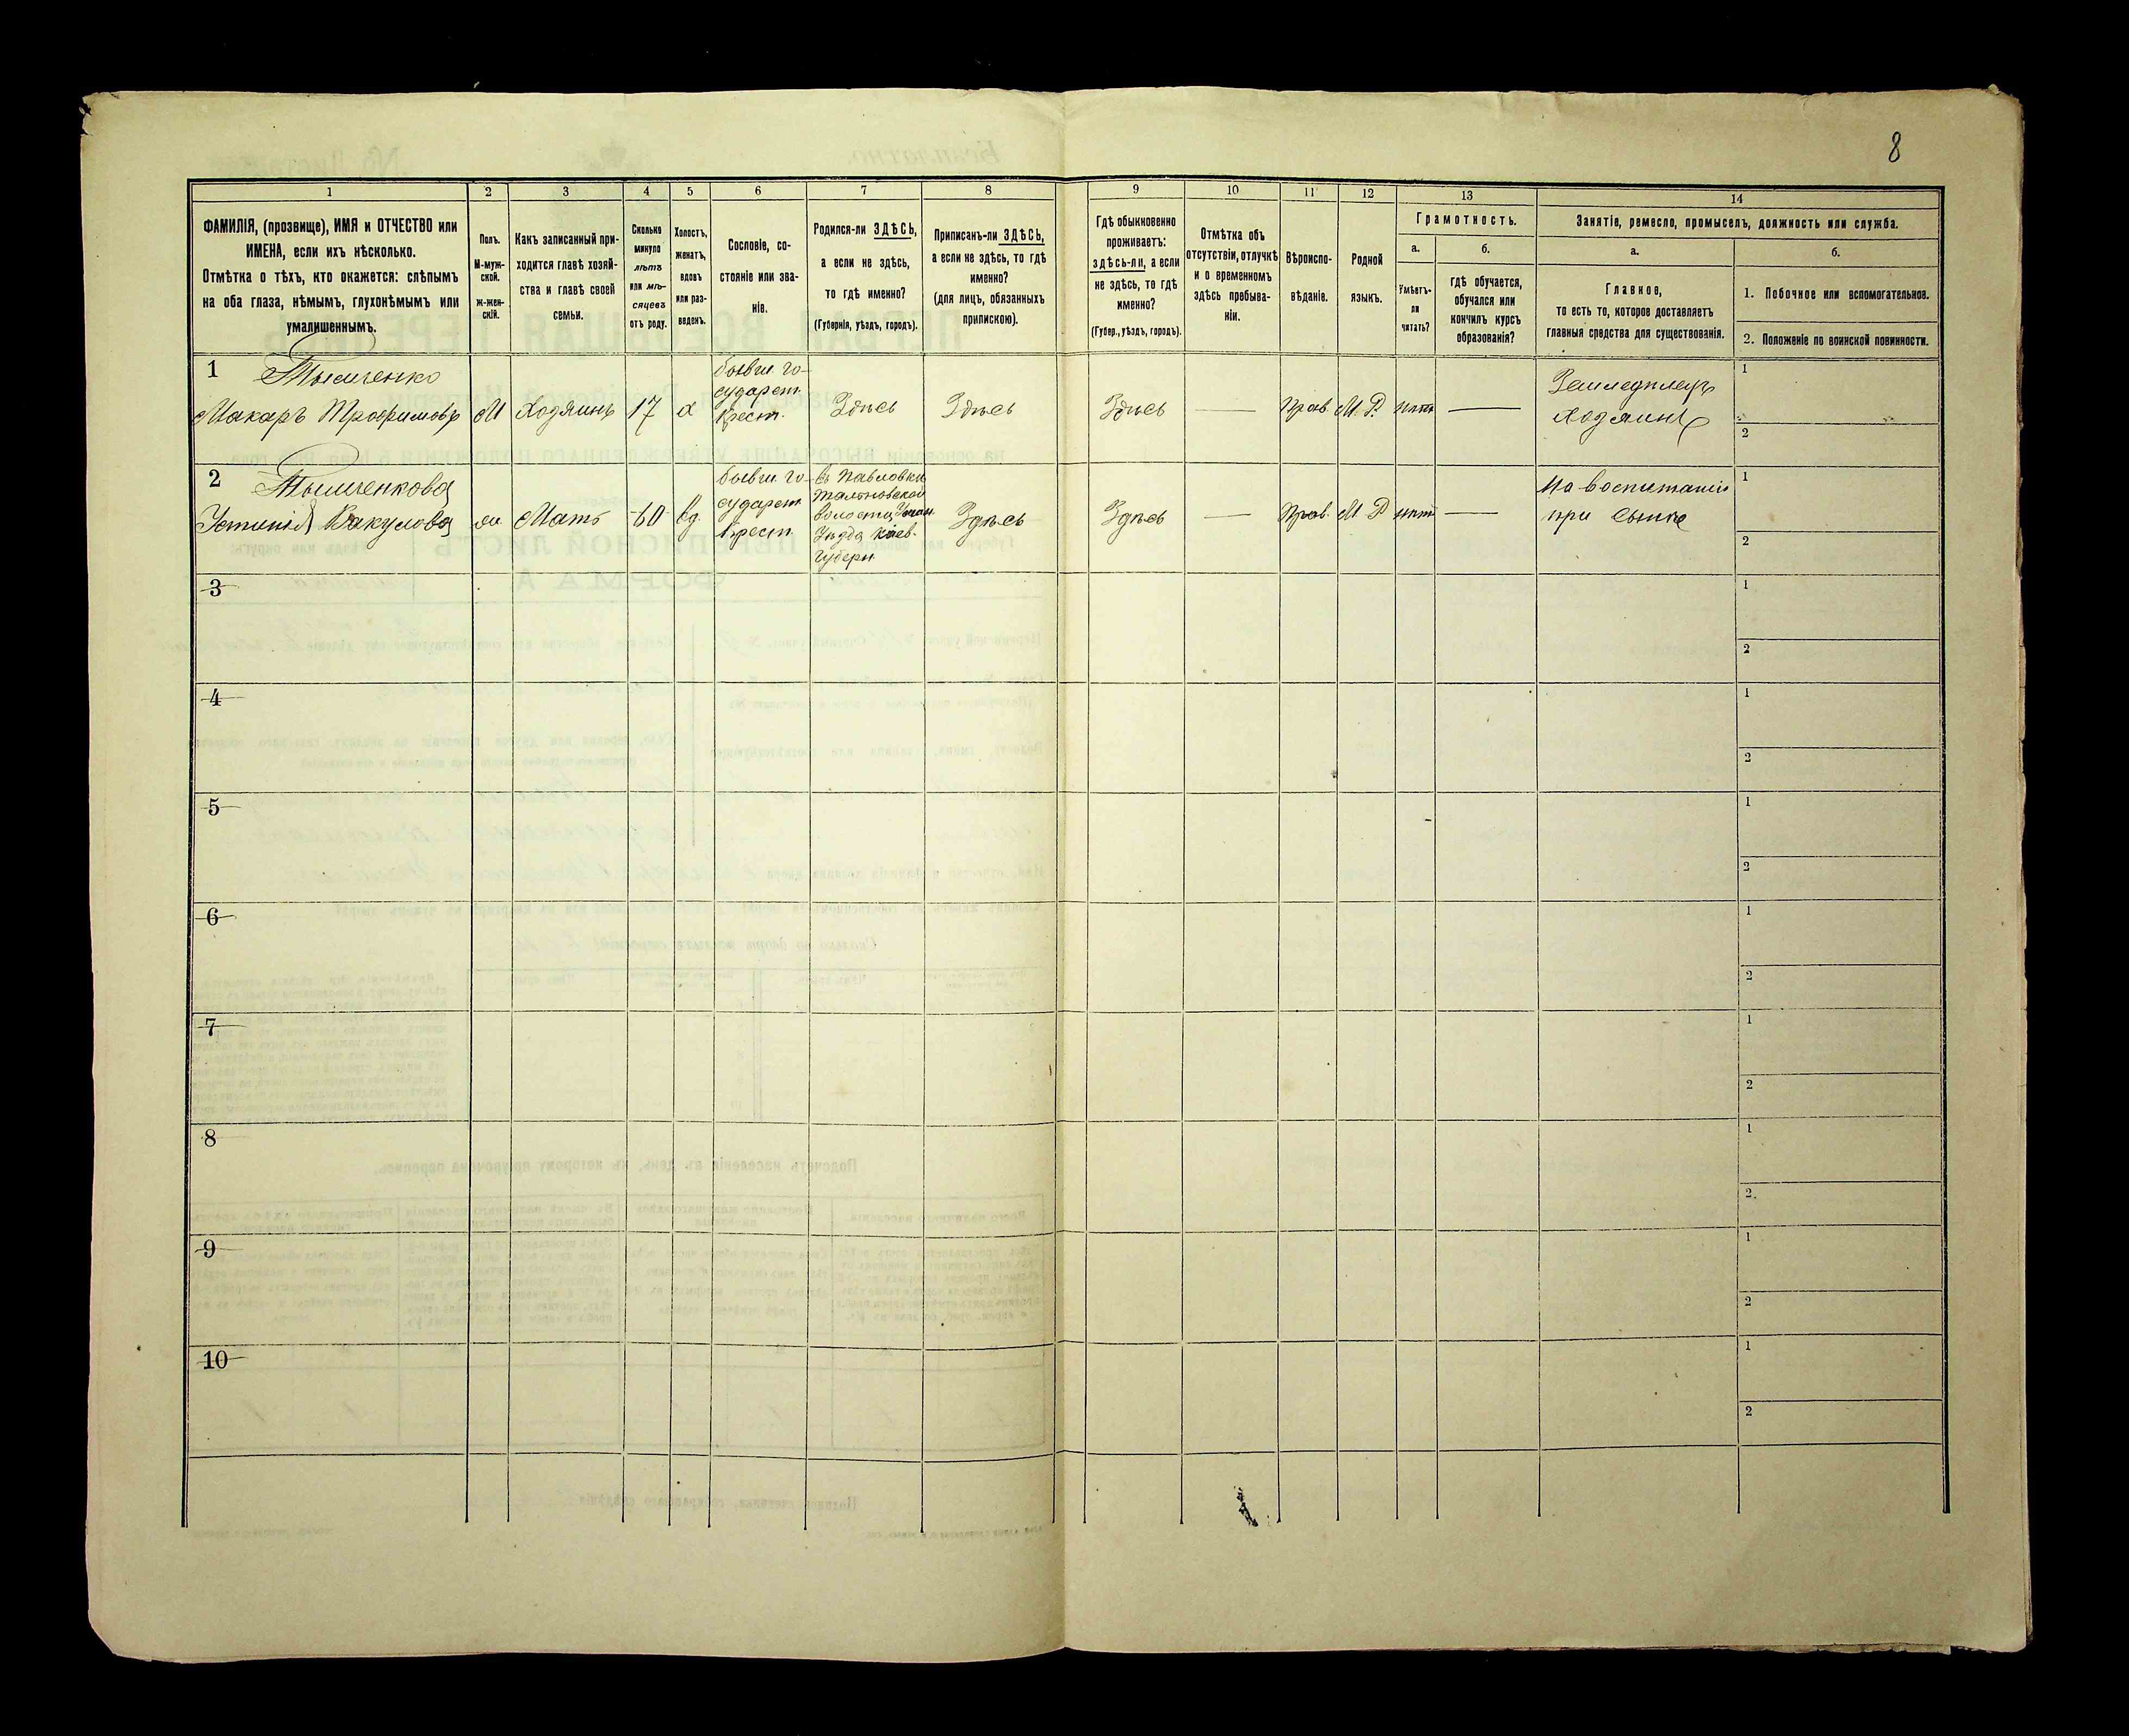 8
1 2 3 4 5 6 7 8 9 10 11 12 13 14
ФАМИЛІЯ, (прозвище), ИМЯ и ОТЧЕСТВО или
ИМЕНА, если ихъ нѣсколько.
Отмѣтка о тѣхъ, кто окажется: слѣпымъ
на оба глаза, нѣмымъ, глухонѣмымъ или
умалишеннымъ.
Полъ.
М-муж-
ской.
ж-жен-
скій.
Какъ записанный при-
ходится главѣ хозяй-
ства и главѣ своей
семьи.
Сколько
минуло
лѣтъ
или мѣ-
сяцевъ
отъ роду.
Холостъ,
женатъ,
вдовъ
или раз-
веденъ.
Сословіе, со-
стояніе или зва-
ніе.
Родился-ли ЗДѢСЬ,
а если не здѣсь,
то гдѣ именно?
(Губернія, уѣздъ, городъ).
Приписанъ-ли ЗДѢСЬ,
а если не здѣсь, то гдѣ
именно?
(для лицъ, обязанныхъ
припискою).
Гдѣ обыкновенно
проживаетъ:
здѣсь-ли, а если
не здѣсь, то гдѣ
именно?
(Губер., уѣздъ, городъ).
Отмѣтка объ
отсутствіи, отлучкѣ
и о временномъ
здѣсь пребыва-
ніи.
Вѣроиспо-
вѣданіе.
Родной
языкъ.
Грамотность.
а.
Умѣетъ-
ли
читать?
б.
гдѣ обучается,
обучался или
кончилъ курсъ
образованія?
Занятіе, ремесло, промыселъ, должность или служба.
а.
Главное,
то есть то, которое доставляетъ
главныя средства для существованія.
б.
1. Побочное или вспомогательное.
2. Положеніе по воинской повинности.
1
Тымченко
Макаръ Трофимовъ
М
Хозяинъ
17
х
бывш. го-
сударст.
крест.
Здѣсь
Здѣсь
Здѣсь
—
Прав.
М. Р.
нѣтъ
—
Земледѣлецъ
Хозяинъ
1
2
2
Тымченкова
Устинія Вакулова
ж
Мать
60
вд.
бывш. го-
сударст.
крест.
въ Павловкѣ
Тальновской
волости, Уман.
Уѣзда Кіев.
Губерн
Здѣсь
Здѣсь
—
Прав.
М Р
нѣтъ
—
На воспитаніи
при сынѣ
1
2
3
1
2
4
1
2
5
1
2
6
1
2
7
1
2
8
1
2
9
1
2
10
1
2